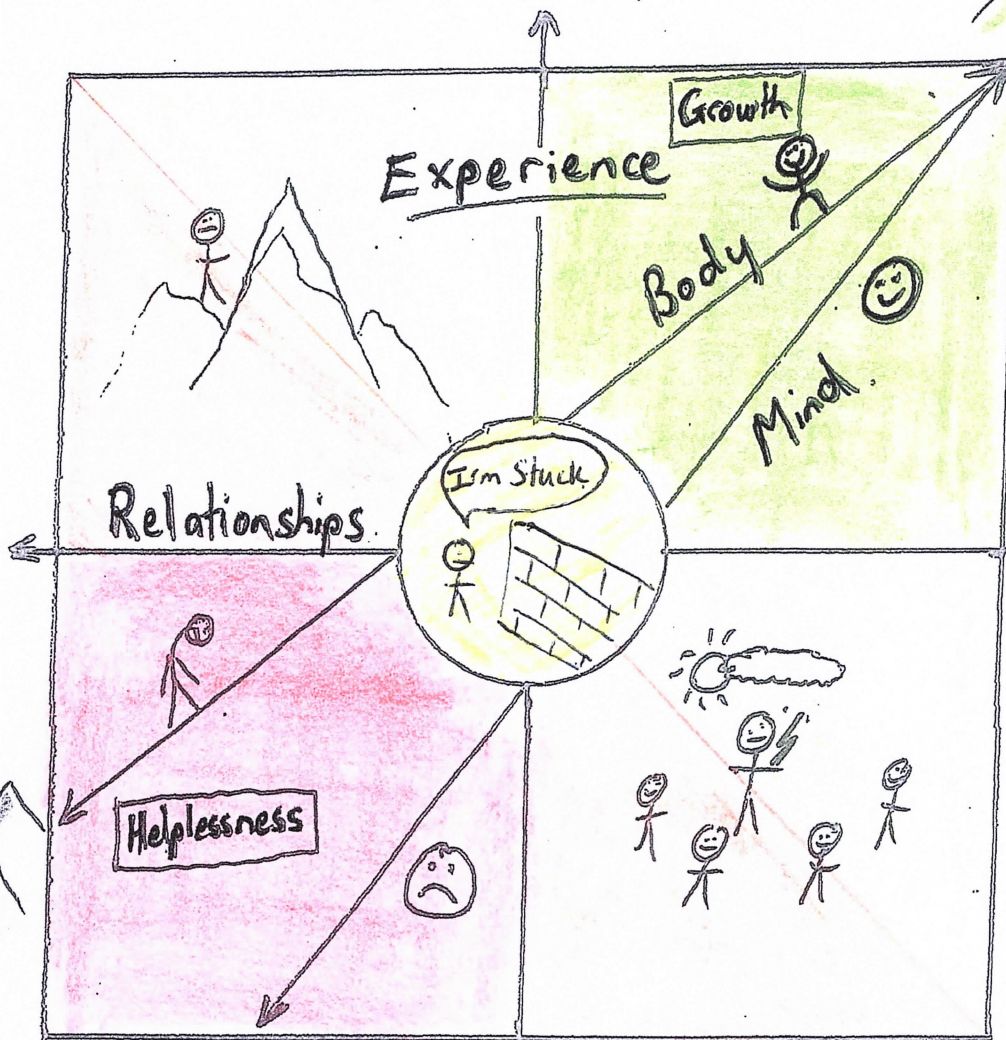 Growth
Experience
Body
Mind.
I'm Stuck
Relationships.
Helplessness